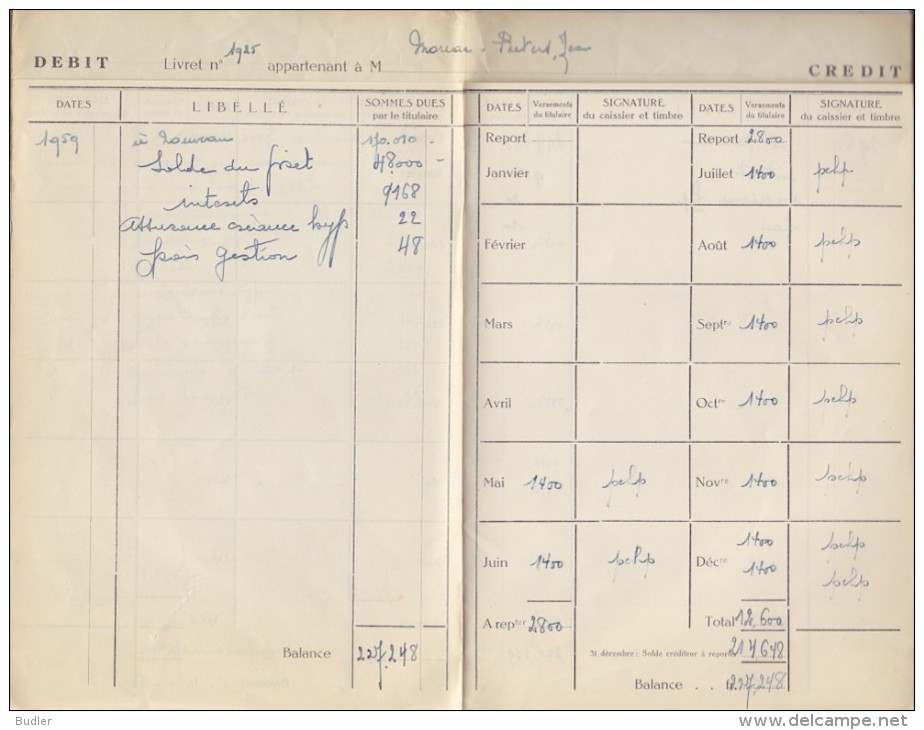 DEBIT
Livret n° 1925 appartenant à M Pieters, Jean
CREDIT
DATES LIBELLÉ SOMMES DUES par le titulaire
1959 à nouveau 170.010 -
Solde du prêt 48.000 -
intérêts 9168
Assurance créance hyp 22
frais gestion 48
Balance 227.248
DATES Versements du titulaire SIGNATURE du caissier et timbre
Report
Janvier
Février
Mars
Avril
Mai 1400 pchp
Juin 1400 pchp
A repter 2800
DATES Versements du titulaire SIGNATURE du caissier et timbre
Report 2800
Juillet 1400 pchp
Août 1400 pchp
Septre 1400 pchp
Octre 1400 pchp
Novre 1400 pchp
Décre 1400 pchp
1400 pchp
Total 12.600
31 décembre : Solde créditeur à reporter 214648
Balance . . 227.248
Budler
www.delcampe.net